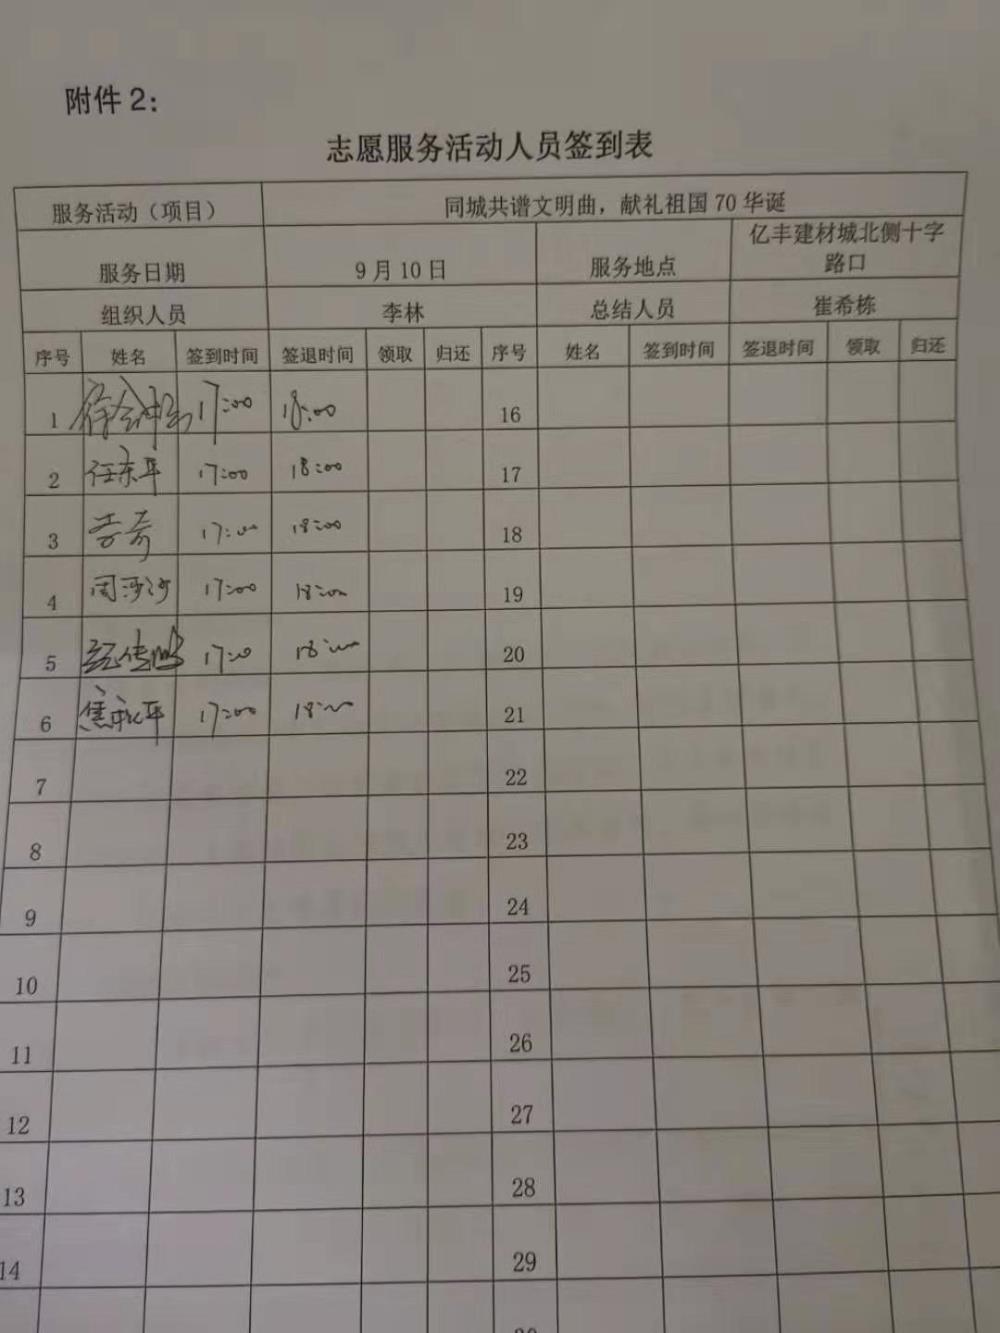 附件2：
志愿服务活动人员签到表
服务活动（项目） 同城共谱文明曲，献礼祖国70华诞
服务日期 9月10日 服务地点 亿丰建材城北侧十字
路口
组织人员 李林 总结人员 崔希栋
序号 姓名 签到时间 签退时间 领取 归还 序号 姓名 签到时间 签退时间 领取 归还
1 17:00 18:00 16
2 任东平 17:00 18:00 17
3 李奇 17:00 18:00 18
4 周莎沙 17:00 18:00 19
5 17:00 18:00 20
6 17:00 18:00 21
7 22
8 23
9 24
10 25
11 26
12 27
13 28
14 29